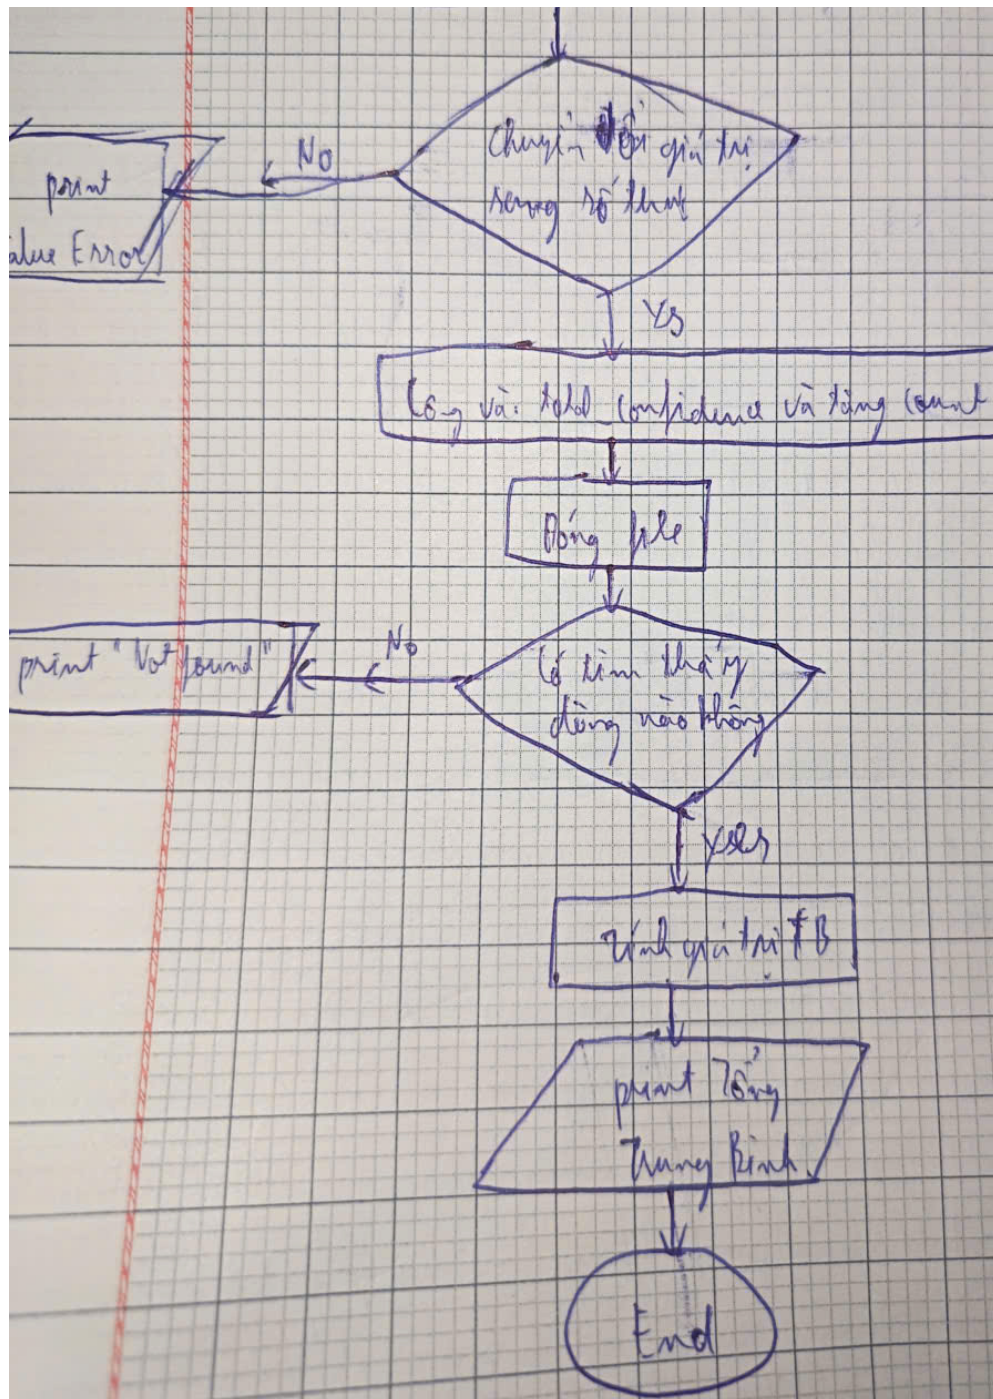 Chuyển đổi giá trị
sang số thực
No
print
alue Error
Yes
Cộng vào total_confidence và tăng count
Đóng file
Có tìm thấy
dòng nào không
No
print "Not found"
Yes
Tính giá trị TB
print Tổng
Trung Bình
End